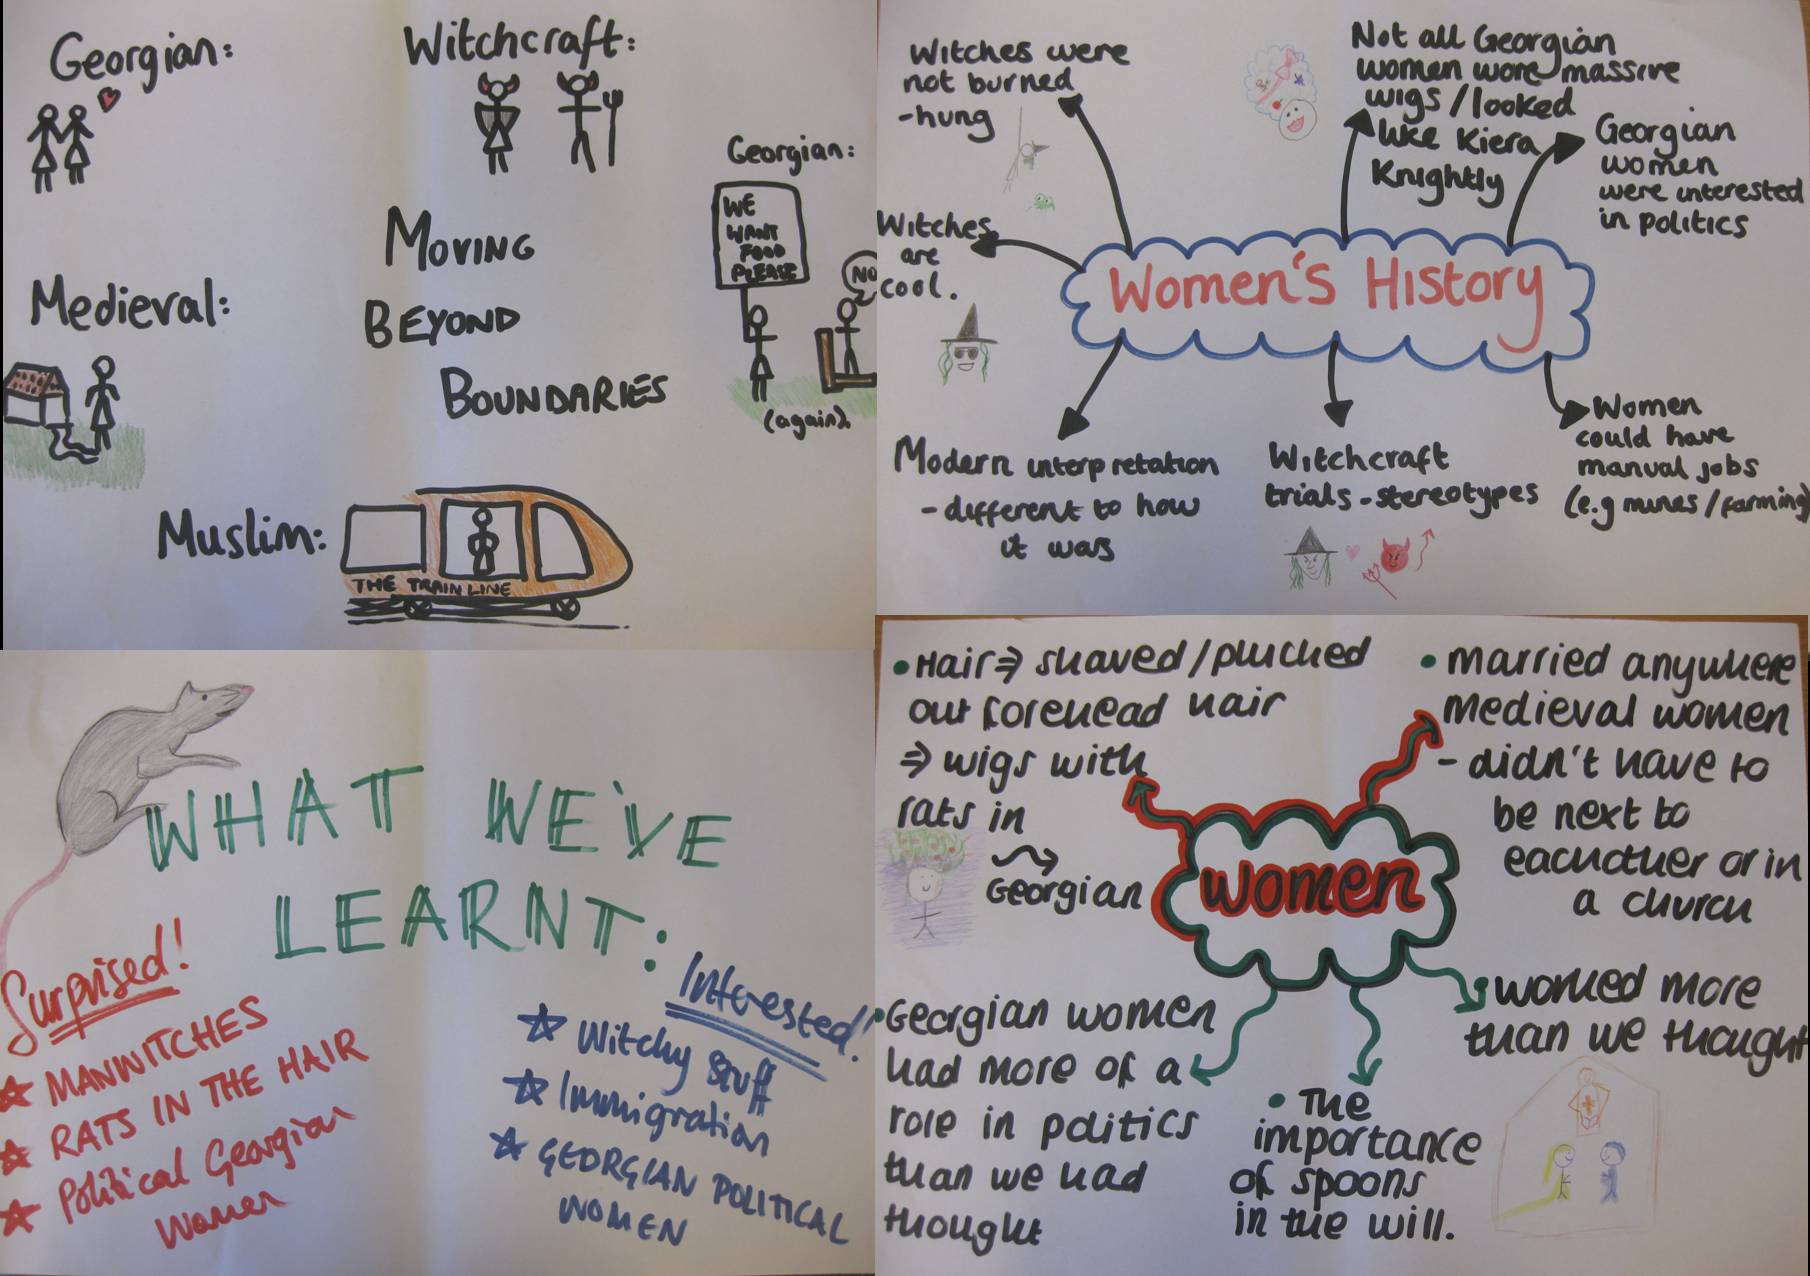 Georgian:
Witchcraft:
Georgian:
WE
WANT
FOOD
PLEASE
NO
(again).
MOVING
BEYOND
BOUNDARIES
Medieval:
Muslim:
THE TRAIN LINE
Witches were
not burned
-hung
Not all Georgian
women wore massive
wigs/looked
like Kiera
Knightly
Georgian
women
were interested
in politics
Witches
are
cool.
Women's History
Modern interpretation
- different to how
it was
Witchcraft
trials - stereotypes
Women
could have
manual jobs
(e.g mines/farming)
WHAT WE'VE
LEARNT:
Surprised!
MANWITCHES
RATS IN THE HAIR
Political Georgian
Women
Interested!
Witchy stuff
Immigration
GEORGIAN POLITICAL
WOMEN
• Hair ⇒ shaved/plucked
out forehead hair
⇒ wigs with
rats in
Georgian
• married anywhere
medieval women
- didn't have to
be next to
eachother or in
a church
women
• Georgian women
had more of a
role in politics
than we had
thought
• The
importance
of spoons
in the will.
• worked more
than we thought